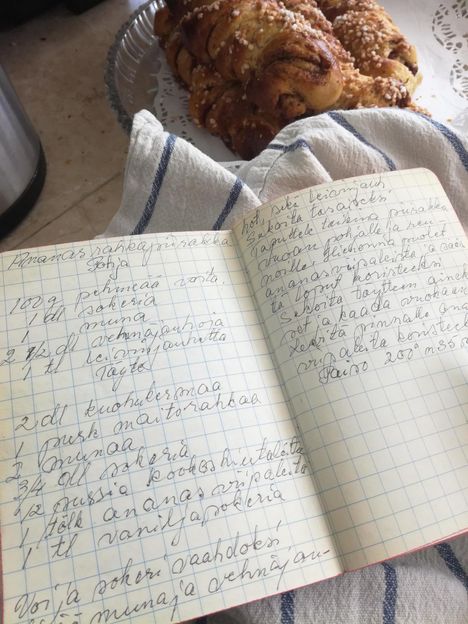 Ananasrahkapiirakka
Pohja
100 g pehmeää voita
1 dl sokeria
1 muna
2 1/2 dl vehnäjauhoja
1 tl leivinjauhetta
Täyte
2 dl kuohukermaa
1 purk maitorahkaa
2 munaa
3/4 dl sokeria
1/2 pussia kookoshiutaleita
1 tölk ananasviipaleita
1 tl vaniljasokeria
Voi ja sokeri vaahdoksi
muna ja vehnäjau-
hot, sekä leivinjauh
Sekoita tasaiseksi
taputtele taikina piirakka
vuoan pohjalle ja reu
noille
ananasviipaleista ja
ta loput koristeeksi
Sekoita täytteen aine
et ja kaada vuokaan
pinnalle ana
viipaleita koristee
Paisto 200° n 35 m